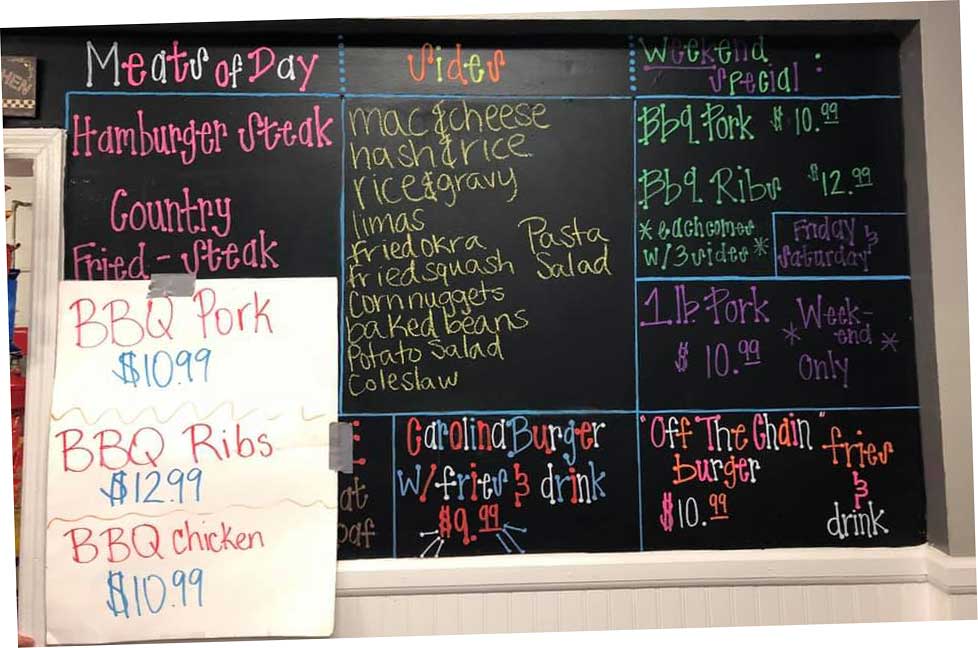 HEN
Meats of Day
Hamburger Steak
Country
Fried - Steak
BBQ Pork
$10.99
BBQ Ribs
$12.99
BBQ Chicken
$10.99
Sides
mac & cheese
hash & rice
rice & gravy
limas
fried okra
fried squash
Corn nuggets
baked beans
Potato Salad
Coleslaw
Pasta
Salad
Weekend
Special:
Bbq Pork $10.99
Bbq Ribs $12.99
*each comes
w/3 sides*
Friday &
Saturday
1 lb Pork
$10.99
*Week-
end*
Only
Carolina Burger
w/fries & drink
$9.99
"Off The Chain"
burger
$10.99
fries
&
drink